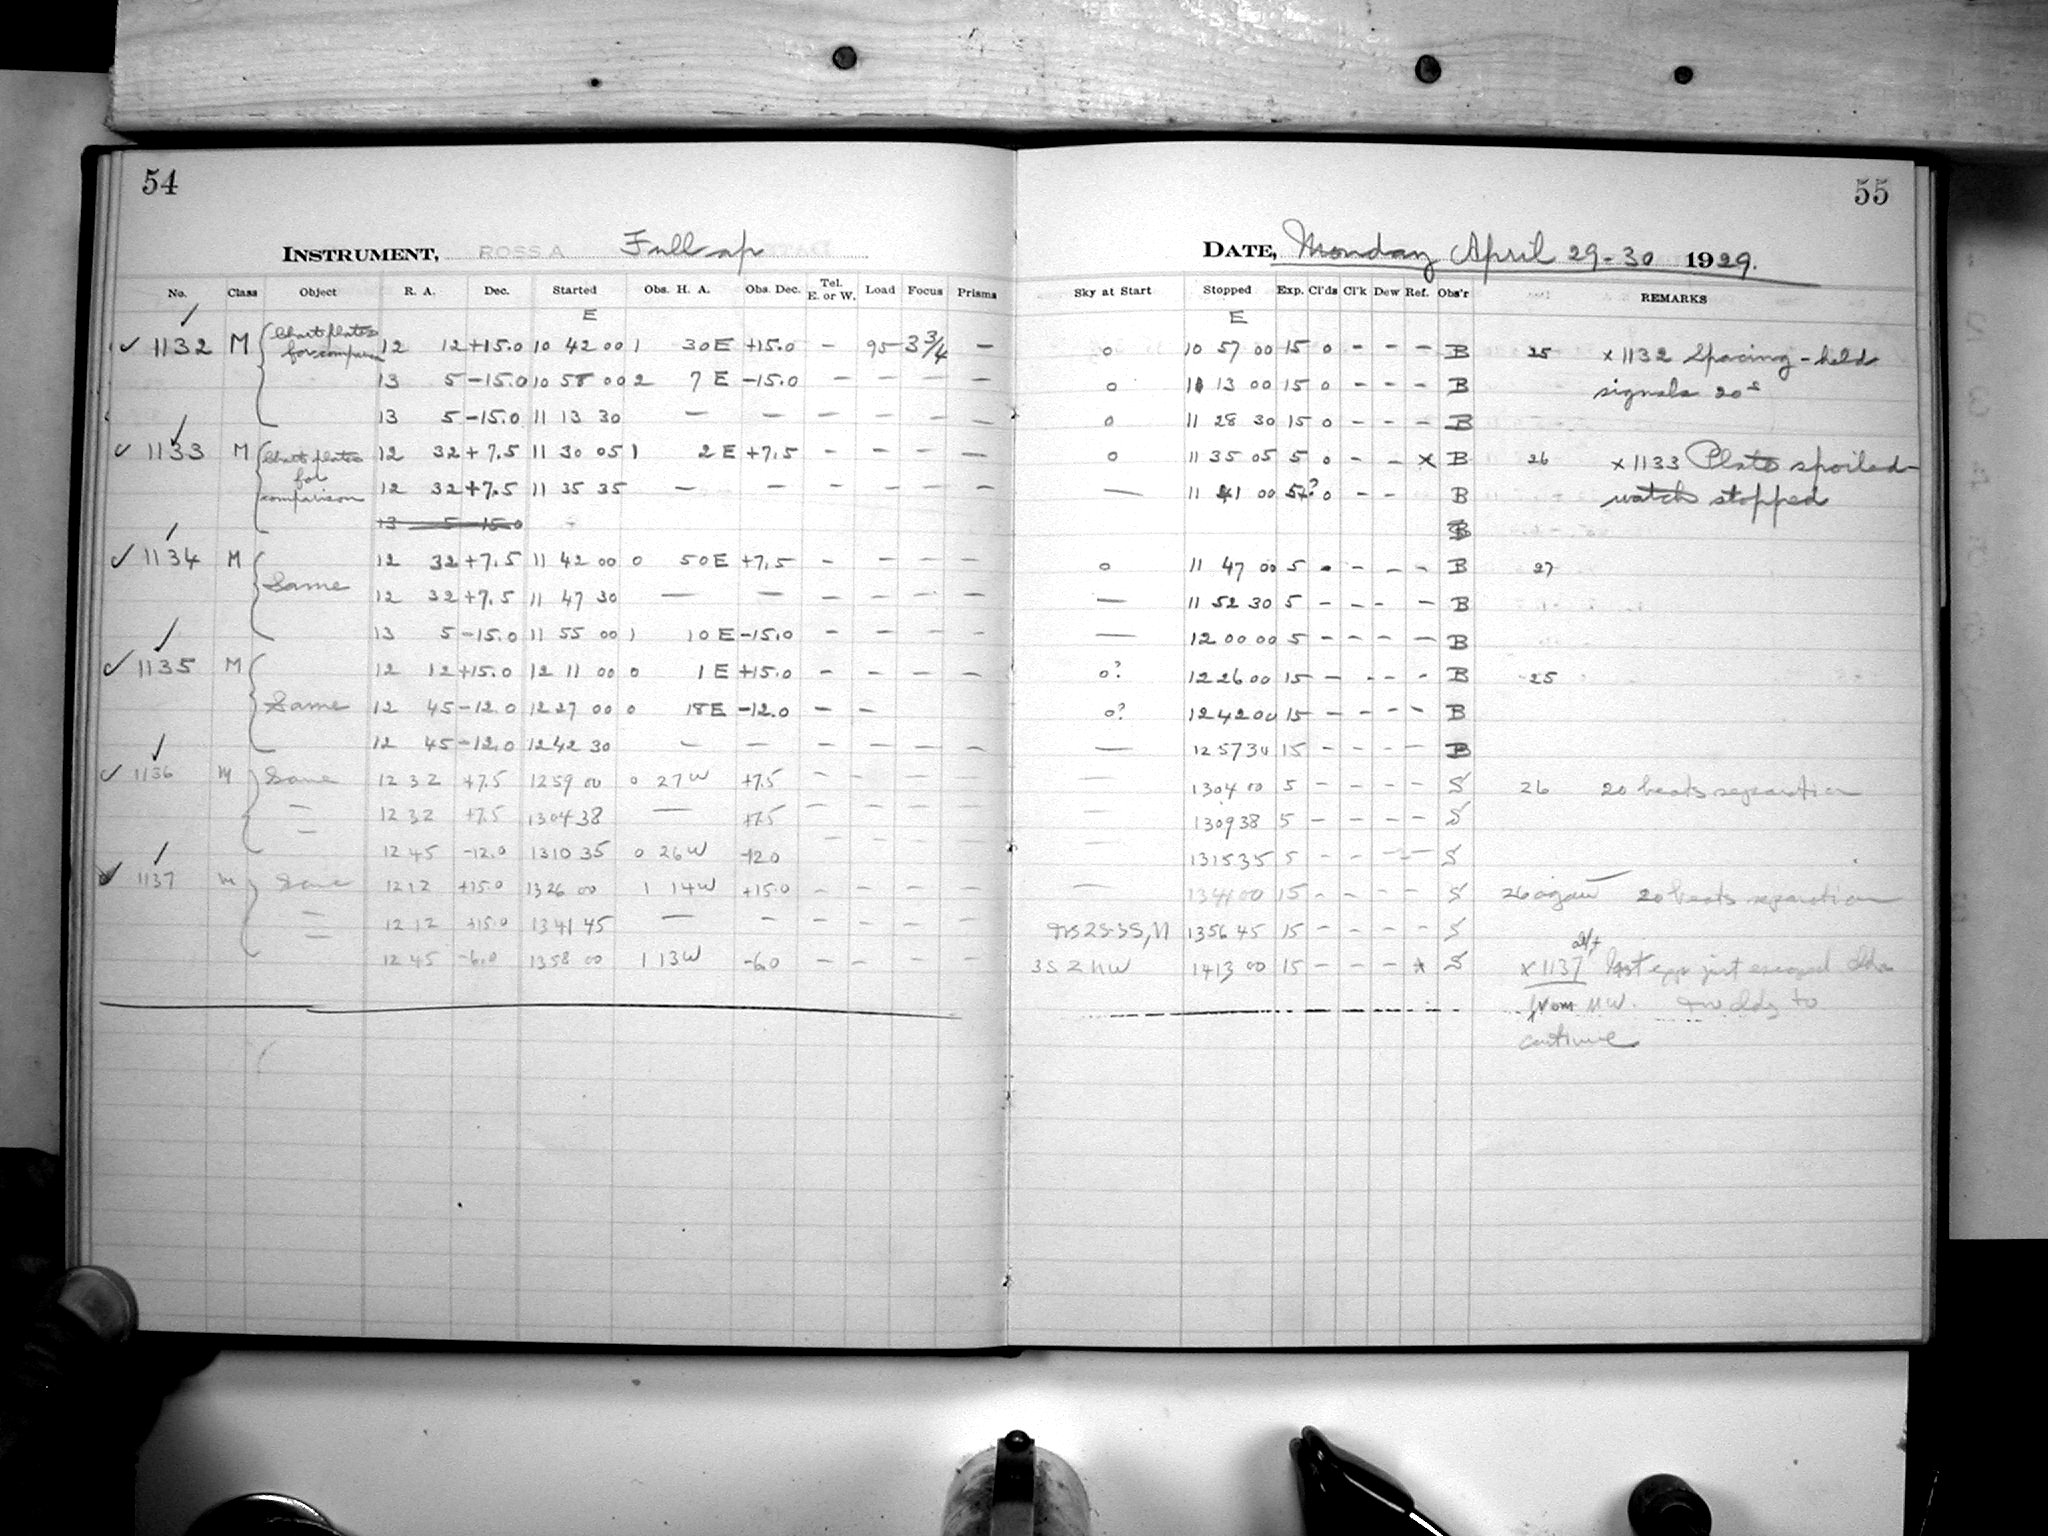 54
INSTRUMENT, ROSS A Full ap
No. Class Object R. A. Dec. Started Obs. H. A. Obs. Dec. Tel. E. or W. Load Focus Prisms
E
✓ 1132 M Chart plates for comparison 12 12 +15.0 10 42 00 1 30 E +15.0 – 95 3 3/4 –
13 5 -15.0 10 58 00 2 7 E -15.0 – – – –
13 5 -15.0 11 13 30 – – – – – –
✓ 1133 M Chart plates for comparison 12 32 +7.5 11 30 05 1 2 E +7.5 – – – –
12 32 +7.5 11 35 35 – – – – – –
13 5 -15.0
✓ 1134 M Same 12 32 +7.5 11 42 00 0 50 E +7.5 – – – –
12 32 +7.5 11 47 30 – – – – – –
13 5 -15.0 11 55 00 1 10 E -15.0 – – – –
✓ 1135 M Same 12 12 +15.0 12 11 00 0 1 E +15.0 – – – –
12 45 -12.0 12 27 00 0 18 E -12.0 – –
12 45 -12.0 12 42 30 – – – – – –
✓ 1136 M Same 12 32 +7.5 12 59 00 0 27 W +7.5 – – – –
– 12 32 +7.5 13 04 38 – +7.5 – – – –
– 12 45 -12.0 13 10 35 0 26 W -12.0 – – – –
✓ 1137 M Same 12 12 +15.0 13 26 00 1 14 W +15.0 – – – –
– 12 12 +15.0 13 41 45 – – – – – –
– 12 45 -6.0 13 58 00 1 13 W -6.0 – – – –
55
DATE, Monday April 29-30 1929.
Sky at Start Stopped Exp. Cl'ds Cl'k Dew Ref. Obs'r REMARKS
E
0 10 57 00 15 0 – – – B 25 x 1132 Spacing – held
0 11 13 00 15 0 – – – B signals 20s
0 11 28 30 15 0 – – – B
0 11 35 05 5 0 – – x B 26 x 1133 Plate spoiled –
— 11 41 00 5? 0 – – B watch stopped
B
0 11 47 00 5 – – – B 27
— 11 52 30 5 – – – – B
— 12 00 00 5 – – – – B
0? 12 26 00 15 – – – – B 25
0? 12 42 00 15 – – – – B
— 12 57 30 15 – – – – B
— 13 04 00 5 – – – – S 26 20 beats separation
— 13 09 38 5 – – – – S
— 13 15 35 5 – – – – S
— 13 41 00 15 – – – – S 26 again 20 beats separation
13 56 45 15 – – – – S
14 13 00 15 – – – x S x 1137 last exp just escaped
from NW. to
continue